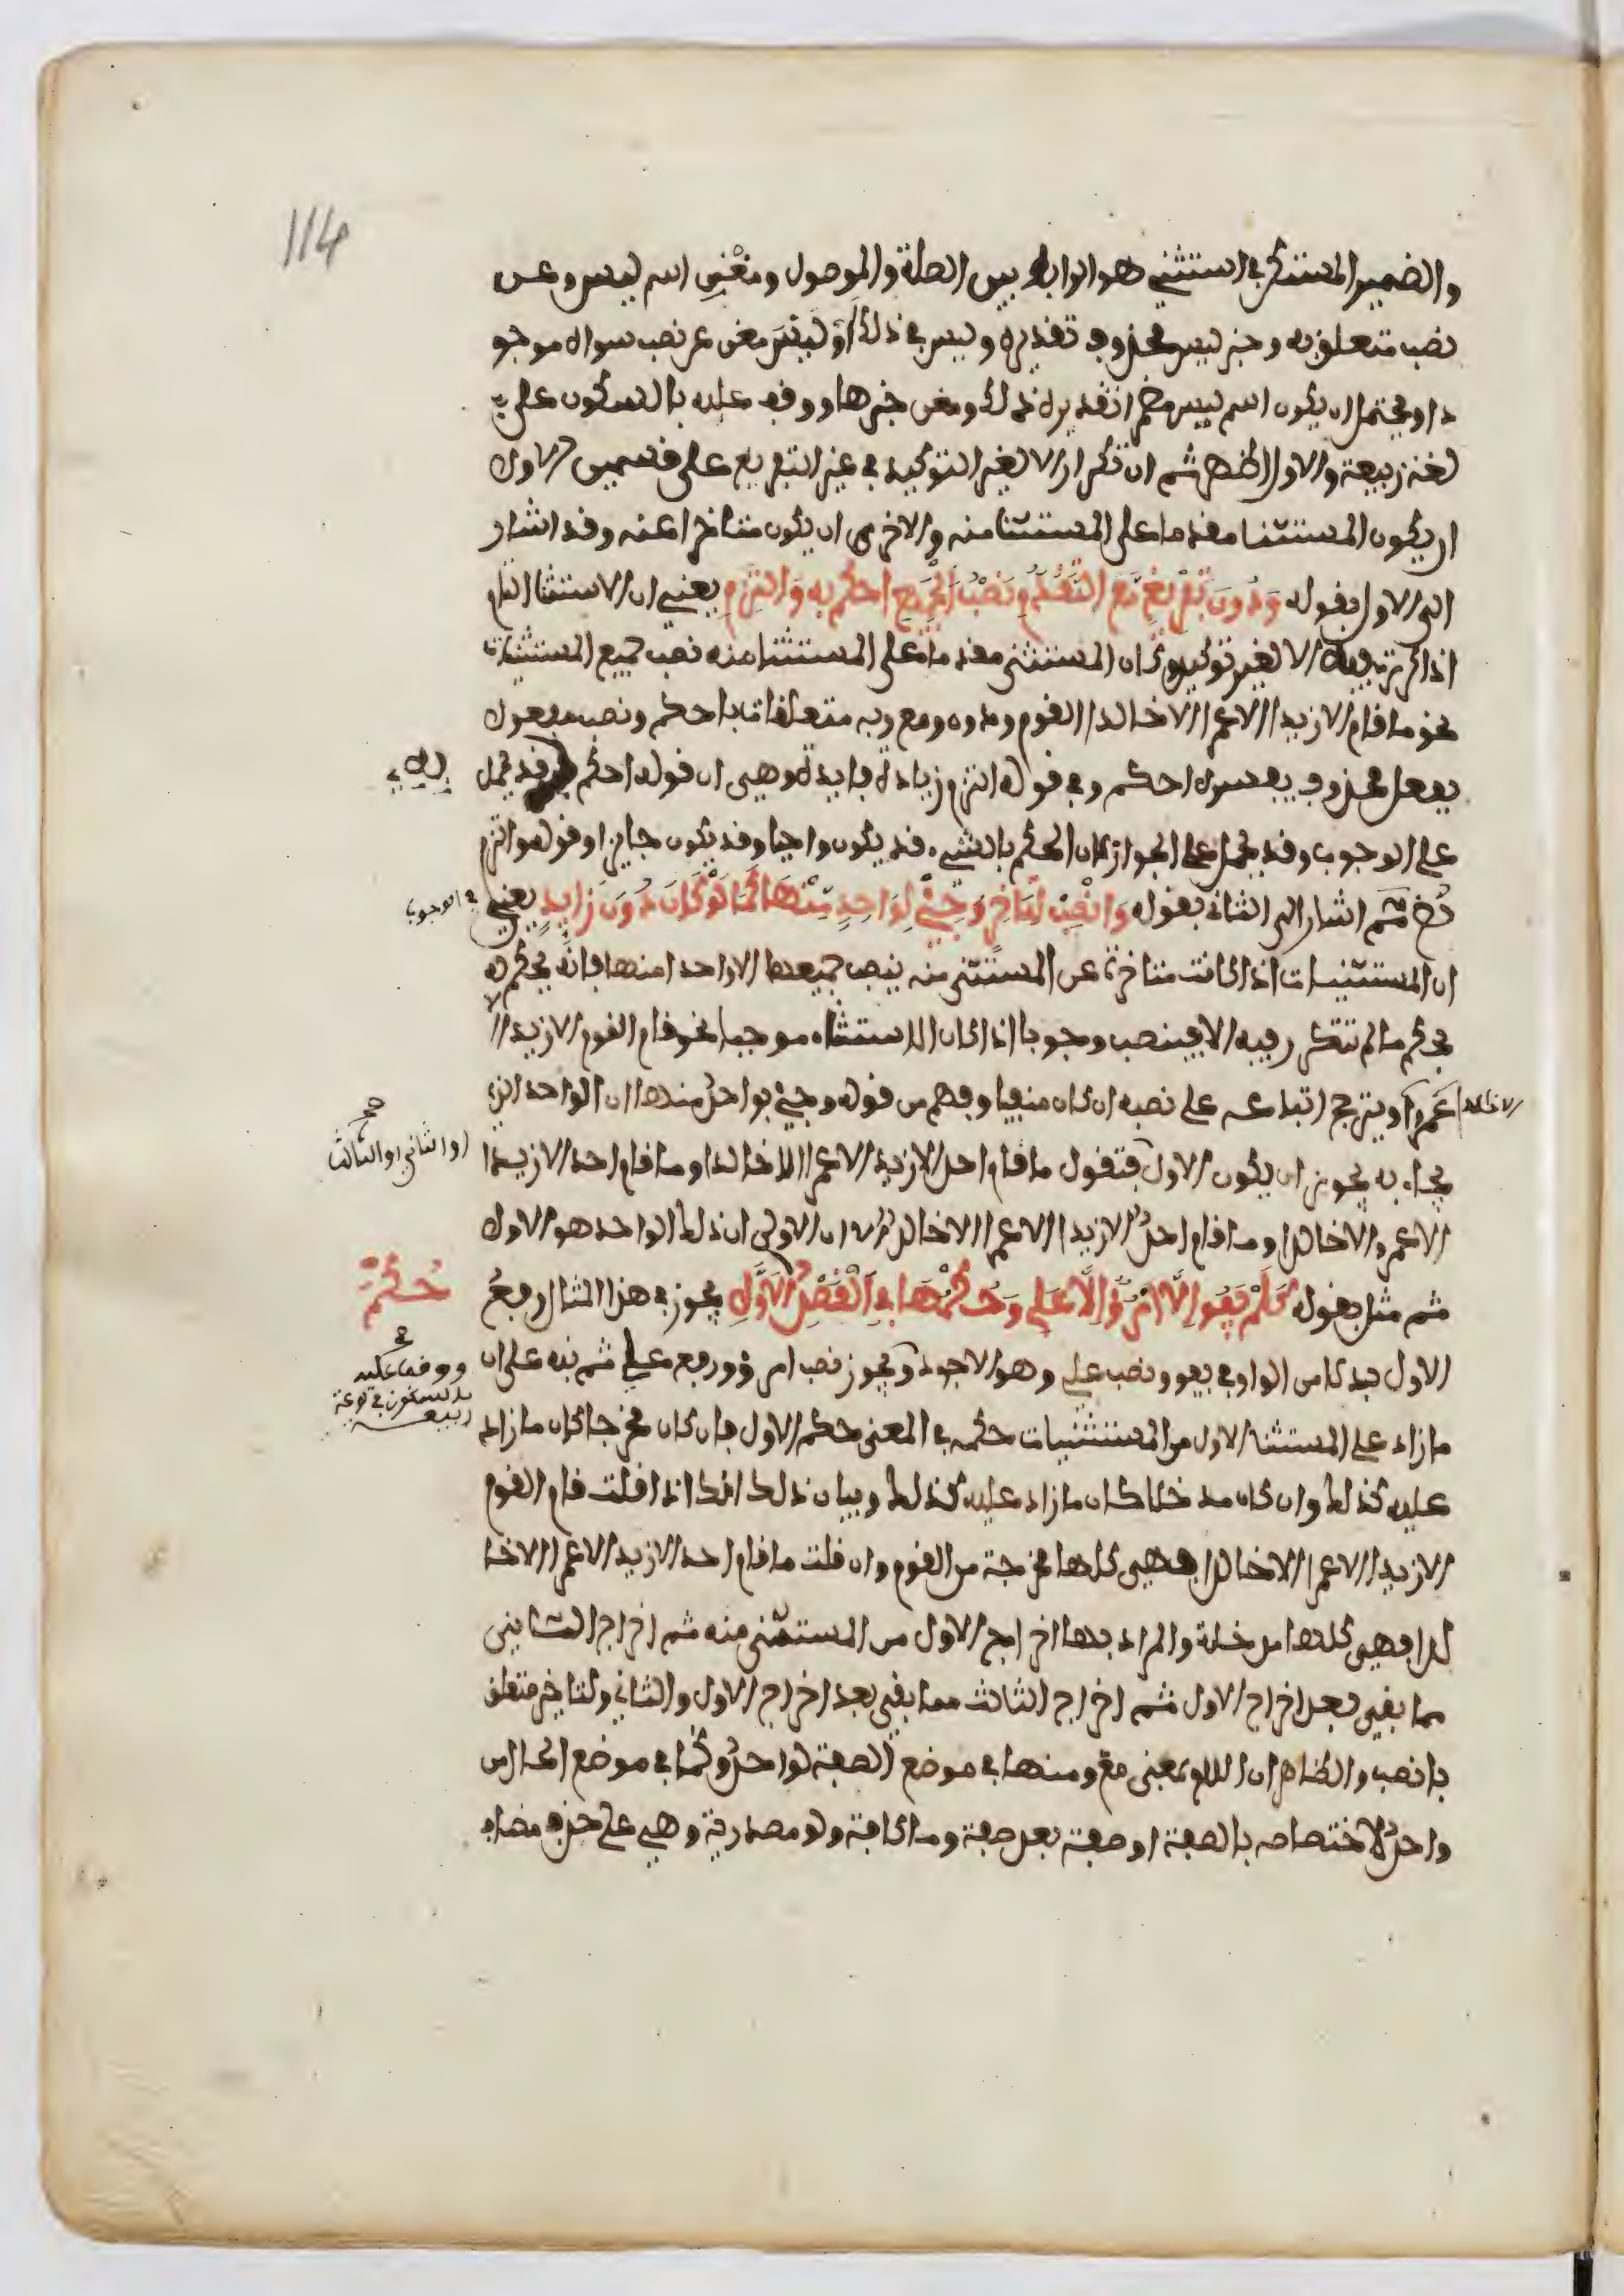 114
والضمير المستتر في استثني هو الرابط بين الصلة والموصول ومغني اسم ليس وعن
نصب متعلق به وخبر ليس محذوف تقديره وليس في ذلك او ليس مغن عن نصب سواه موجو
دا ويحتمل ان يكون اسم ليس مضمرا تقديره ذلك ومغن خبرها ووقف عليه بالسكون على
لغة ربيعة والاول اظهر ثم ان تكرار الا لغير التوكيد في غير التفريغ على قسمين الاول
ان يكون المستثنا مقدما على المستثنا منه والاخرى ان يكون متاخرا عنه وقد اشار
الى الاول بقوله وَدُونَ تَفْرِيغٍ مَعَ التَّقَدُّمِ نَصْبُ الْجَمِيعِ احْكُمْ بِهِ وَالْتَزِمِ يعني ان الاستثنا التام
اذا كررت فيه الا لغير توكيد وكان المستثنى مقدما على المستثنا منه نصب جميع المستثنيات
نحو ما قام الا زيدا الا عمرا الا خالدا القوم ودون ومع وبه متعلقات باحكم ونصب مفعول
بفعل محذوف يفسره احكم وفي قوله التزم زيادة فايدة وهي ان قوله احكم قد يحمل
على الوجوب وقد يحمل على الجواز لان الحكم بالشيء قد يكون واجبا وقد يكون جايزا وقوله والتزم
نص ثم اشار الى الثاني بقوله وَانْصِبْ لِتَأْخِيرٍ وَجِئْ بِوَاحِدٍ مِنْهَا كَمَا لَوْ كَانَ دُونَ زَايِدٍ يعني
في الوجوب
ان المستثنيات اذا كانت متاخرة عن المستثنى منه ينصب جميعها الا واحدا منها فانه يحكم له
بحكم ما لم تتكرر فيه الا فينصب وجوبا اذا كان الاستثناء موجبا نحو قام القوم الا زيدا الا
عَمرا الا خالدا ويترجح اتباعه على نصبه ان كان منفيا وفهم من قوله وجئ بواحد منها ان الواحد الذي
يجاء به يجوز ان يكون الاول فتقول ما قام احد الا زيد الا عمرا الا خالدا وما قام احد الا زيدا
او الثاني او الثالث صح
الا عمرو الا خالدا وما قام احد الا زيدا الا عمرا الا خالد الا ان الاولى ان ذلك الواحد هو الاول
ثم مثل بقوله كَلَمْ يَفُوا إِلَّا امْرُؤٌ إِلَّا عَلِي وَحُكْمُهَا فِي الْقَصْدِ حُكْمُ الْأَوَّلِ يجوز في هذا المثال رفعُ
حُكْمُ
الاول بدلا من الواو في يفوا ونصب علي وهو الاجود ويجوز نصب امرؤ ورفع علي ثم نبه على ان
ووقف عليه
بالسكون في لغة
ربيعة
ما زاد على المستثنا الاول من المستثنيات حكمه في المعنى حكم الاول فان كان مخرجا كان ما زاد
عليه كذلك وان كان مدخلا كان ما زاد عليه كذلك وبيان ذلك انك اذا قلت قام القوم
الا زيدا الا عمرا الا خالدا فهي كلها مخرجة من القوم وان قلت ما قام احد الا زيد الا عمرا الا خا
لدا فهي كلها مدخلة والمراد بها اخراج الاول من المستثنى منه ثم اخراج الثاني
مما بقي بعد اخراج الاول ثم اخراج الثالث مما بقي بعد اخراج الاول والثاني ولتاخير متعلق
بانصب والظاهر ان اللام بمعنى مع ومنها في موضع الصفة لواحد وكما في موضع الحال من
واحد لاختصاصه بالصفة او صفة بعد صفة وما كافة ولو مصدرية وهي على حذف مضاف